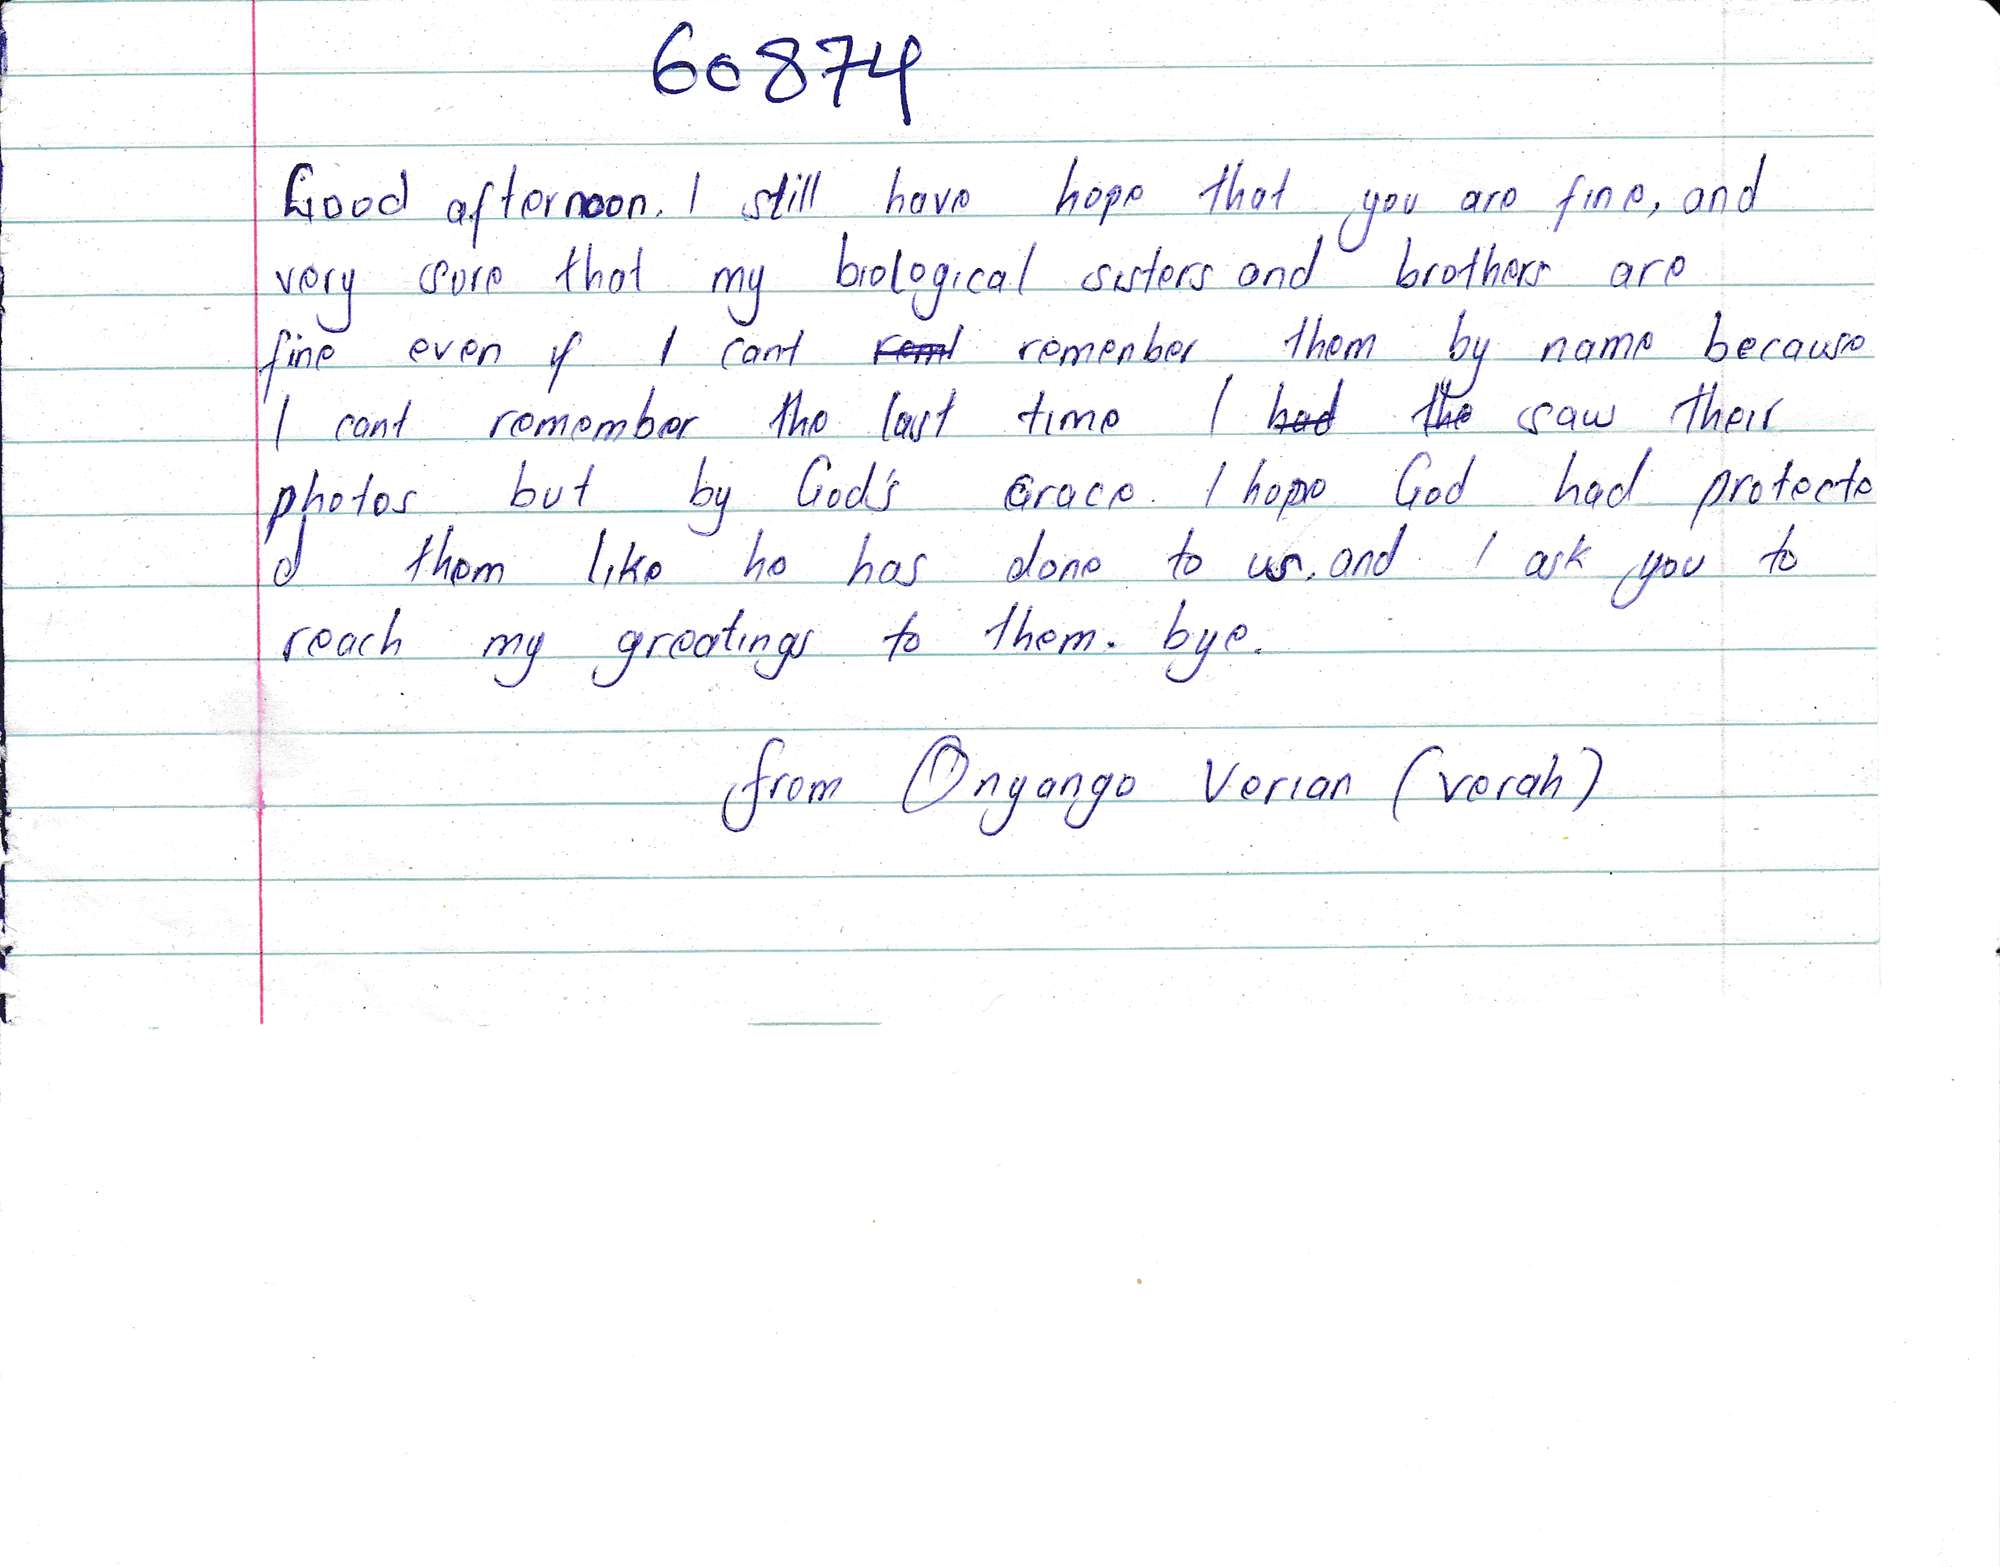 60874
Good afternoon. I still have hope that you are fine, and
very sure that my biological sisters and brothers are
fine even if I cant reml remenber them by name because
I cant remember the last time I had the saw their
photos but by God's Grace. I hope God had protecte
d them like he has done to us, and I ask you to
reach my greatings to them. bye.
from Onyango Verian (verah)